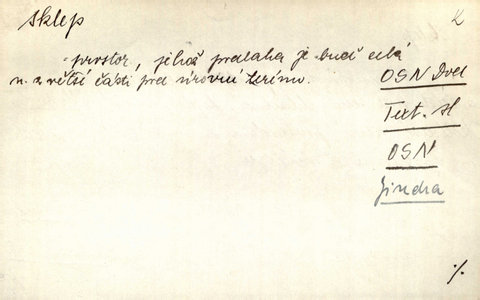 sklep
K
- prostor, jehož podlaha je buď celá
n. z větší části pod úrovní terénu.
OSN Dod
Text. sl
OSN
Jindra
%